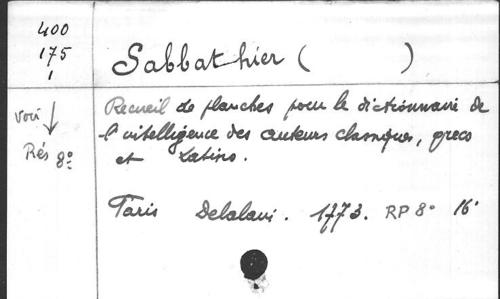 400
175
1
Sabbathier ( )
voir
Rés 8º
Recueil de planches pour le dictionnaire de
l'intelligence des auteurs classiques, grecs
et Latins.
Paris Delalain. 1773. RP 8º 16'